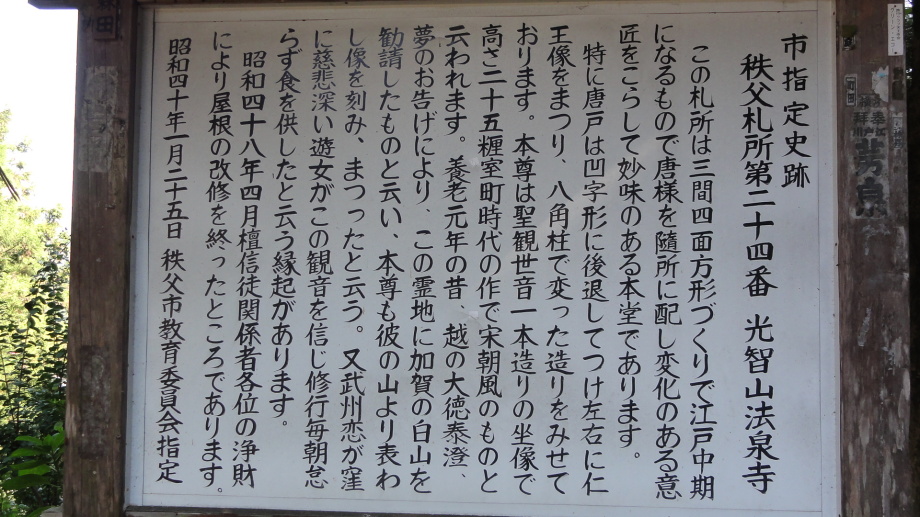 市指定史跡
秩父札所第二十四番 光智山法泉寺
この札所は三間四面方形づくりで江戸中期
になるもので唐様を随所に配し変化のある意
匠をこらして妙味のある本堂であります。
特に唐戸は凹字形に後退してつけ左右に仁
王像をまつり、八角柱で変った造りをみせて
おります。本尊は聖観世音一本造りの坐像で
高さ二十五糎室町時代の作で宋朝風のものと
云われます。養老元年の昔、越の大徳泰澄、
夢のお告げにより、この霊地に加賀の白山を
勧請したものと云い、本尊も彼の山より表わ
し像を刻み、まつったと云う。又武州恋が窪
に慈悲深い遊女がこの観音を信じ修行毎朝怠
らず食を供したと云う縁起があります。
昭和四十八年四月檀信徒関係者各位の浄財
により屋根の改修を終ったところであります。
昭和四十年一月二十五日 秩父市教育委員会指定